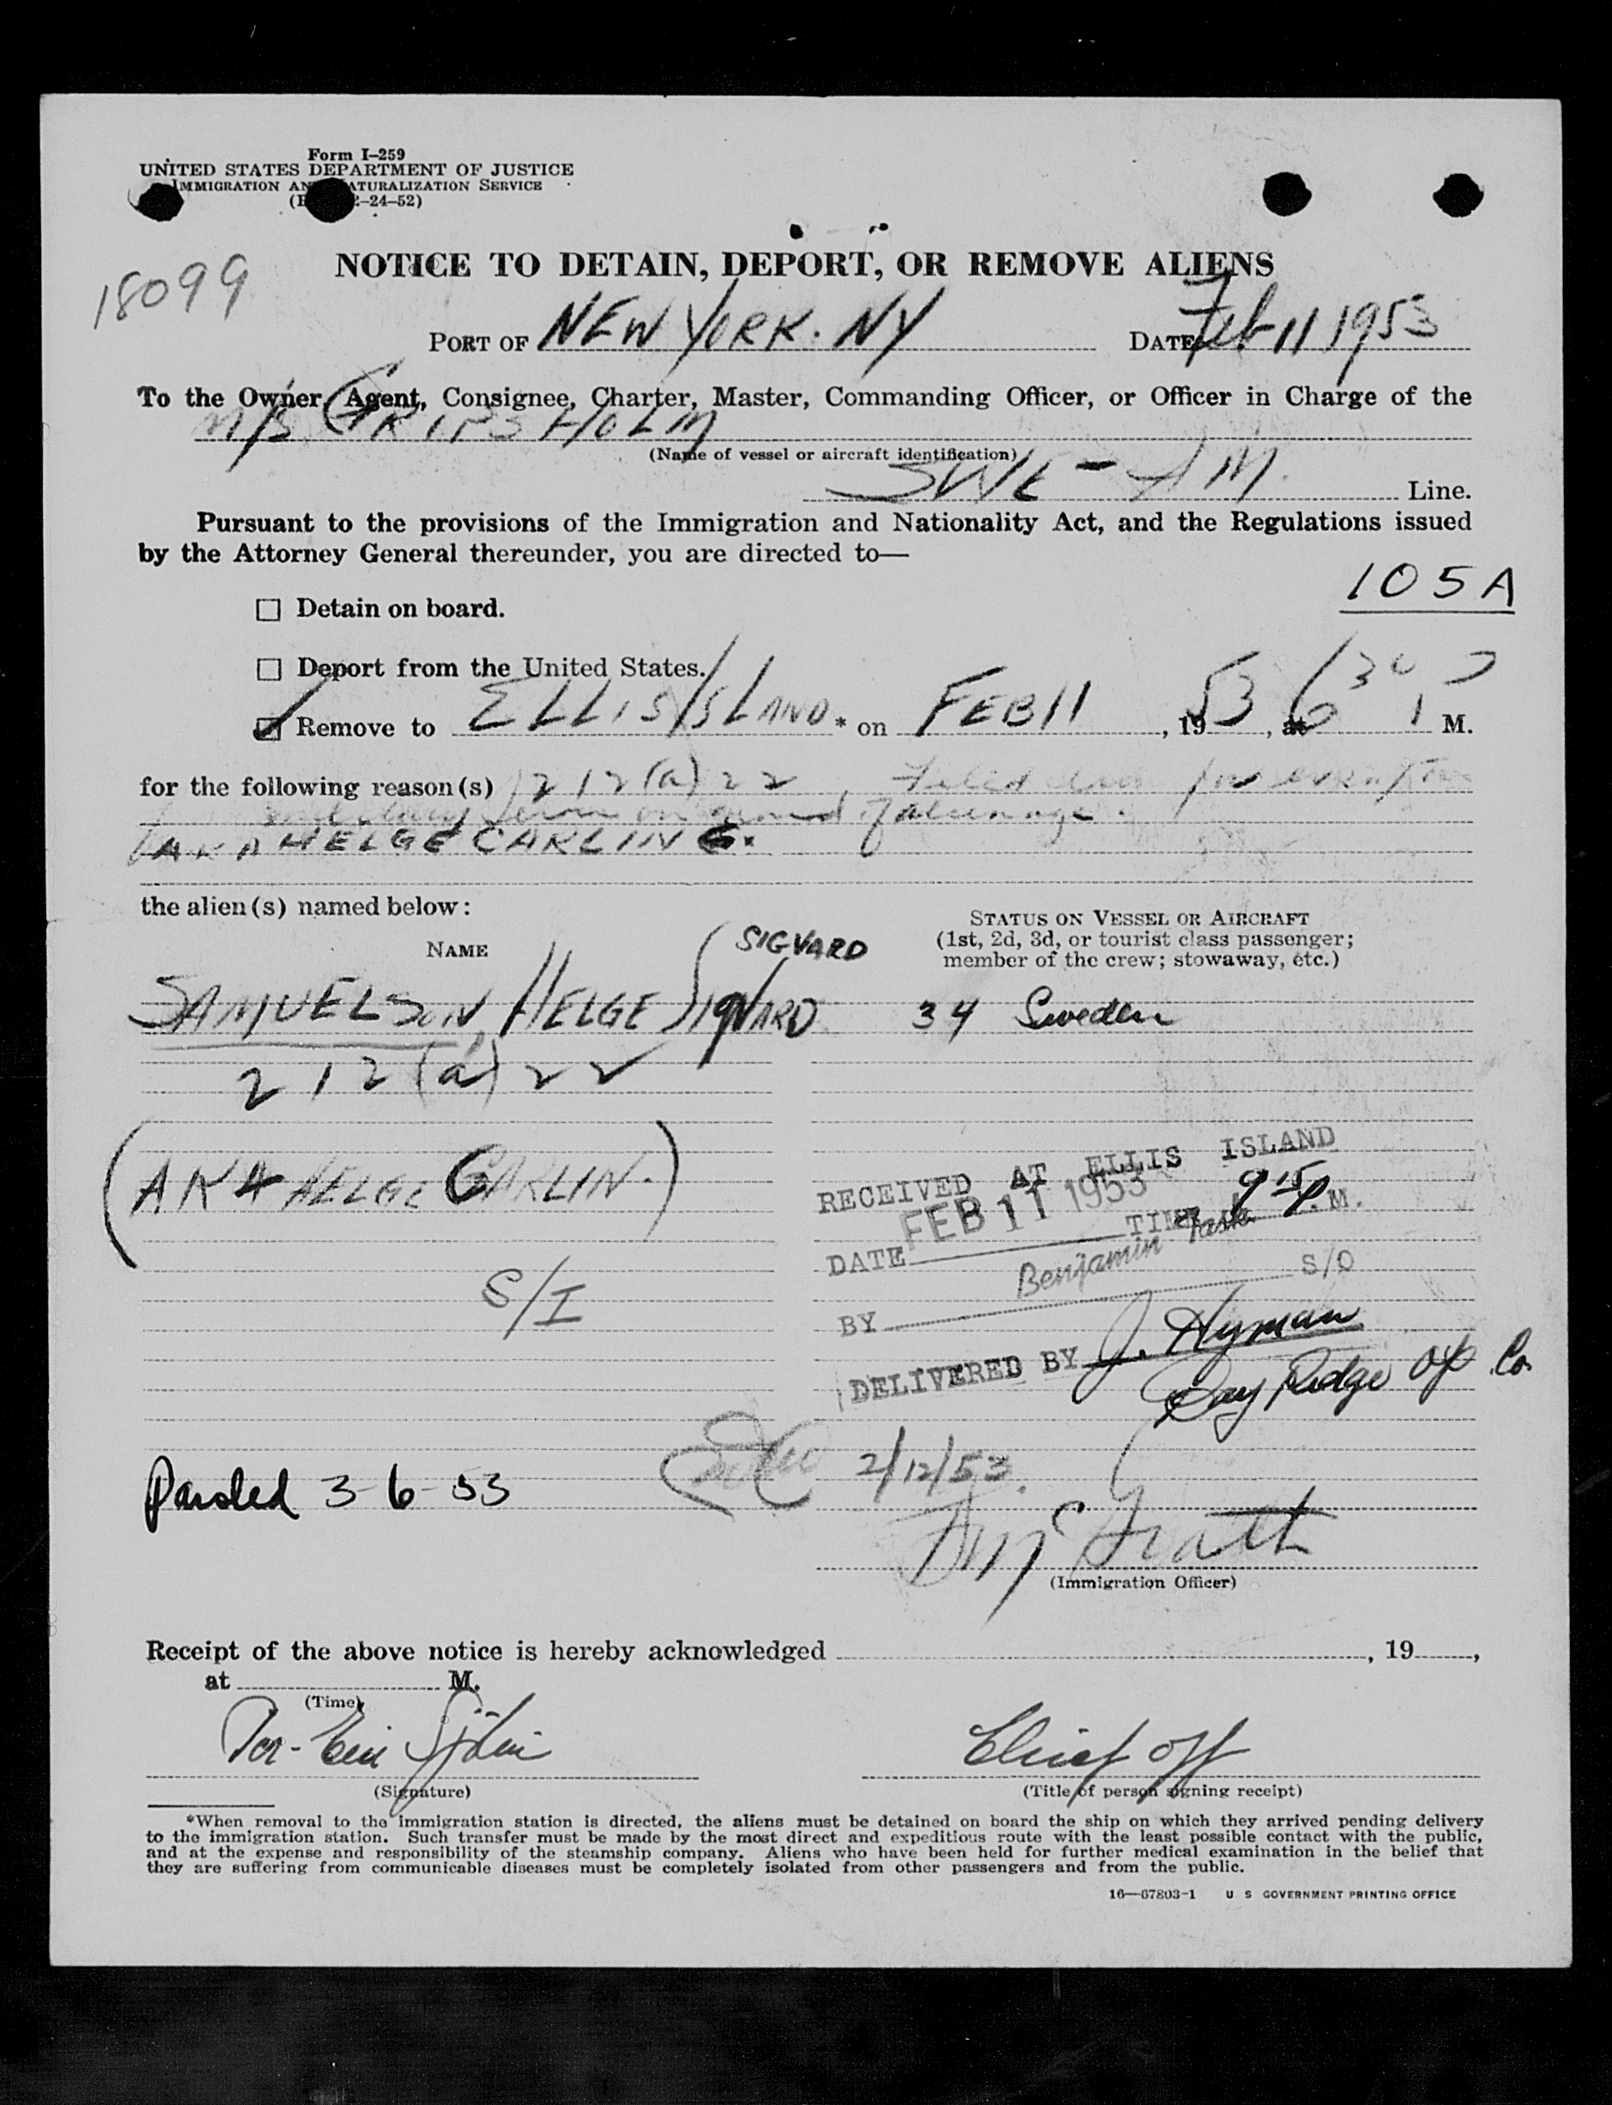 Form I-259
UNITED STATES DEPARTMENT OF JUSTICE
IMMIGRATION AND NATURALIZATION SERVICE
2-24-52)
NOTICE TO DETAIN, DEPORT, OR REMOVE ALIENS
18099
PORT OF NEW YORK. NY DATE Feb 11 1953
To the Owner, Agent, Consignee, Charter, Master, Commanding Officer, or Officer in Charge of the
M/S GRIPSHOLM
(Name of vessel or aircraft identification)
SWE-AM. Line.
Pursuant to the provisions of the Immigration and Nationality Act, and the Regulations issued
by the Attorney General thereunder, you are directed to—
105A
Detain on board.
Deport from the United States.
Remove to ELLIS ISLAND * on FEB 11, 1953, at 6 30 P M.
for the following reason(s) 212(a)22, Filed for
on ground of alienage.
(AKA HELGE CARLING.
the alien(s) named below:
STATUS ON VESSEL OR AIRCRAFT
(1st, 2d, 3d, or tourist class passenger;
member of the crew; stowaway, etc.)
NAME
SIGVARD
SAMUELSON, HELGE SIGVARD 34 Sweden
212(a)22
(AKA HELGE GARLIN.)
RECEIVED AT ELLIS ISLAND
DATE FEB 11 1953 TIME 9 15 P. M.
BY Benjamin S/O
S/I
DELIVERED BY J. Hyman
Bay Ridge Op Co.
2/12/53
Paroled 3-6-53
McGrath
(Immigration Officer)
Receipt of the above notice is hereby acknowledged , 19 ,
at M.
(Time)
Chief off
(Signature) (Title of person signing receipt)
*When removal to the immigration station is directed, the aliens must be detained on board the ship on which they arrived pending delivery
to the immigration station. Such transfer must be made by the most direct and expeditious route with the least possible contact with the public,
and at the expense and responsibility of the steamship company. Aliens who have been held for further medical examination in the belief that
they are suffering from communicable diseases must be completely isolated from other passengers and from the public.
16—67803-1 U S GOVERNMENT PRINTING OFFICE